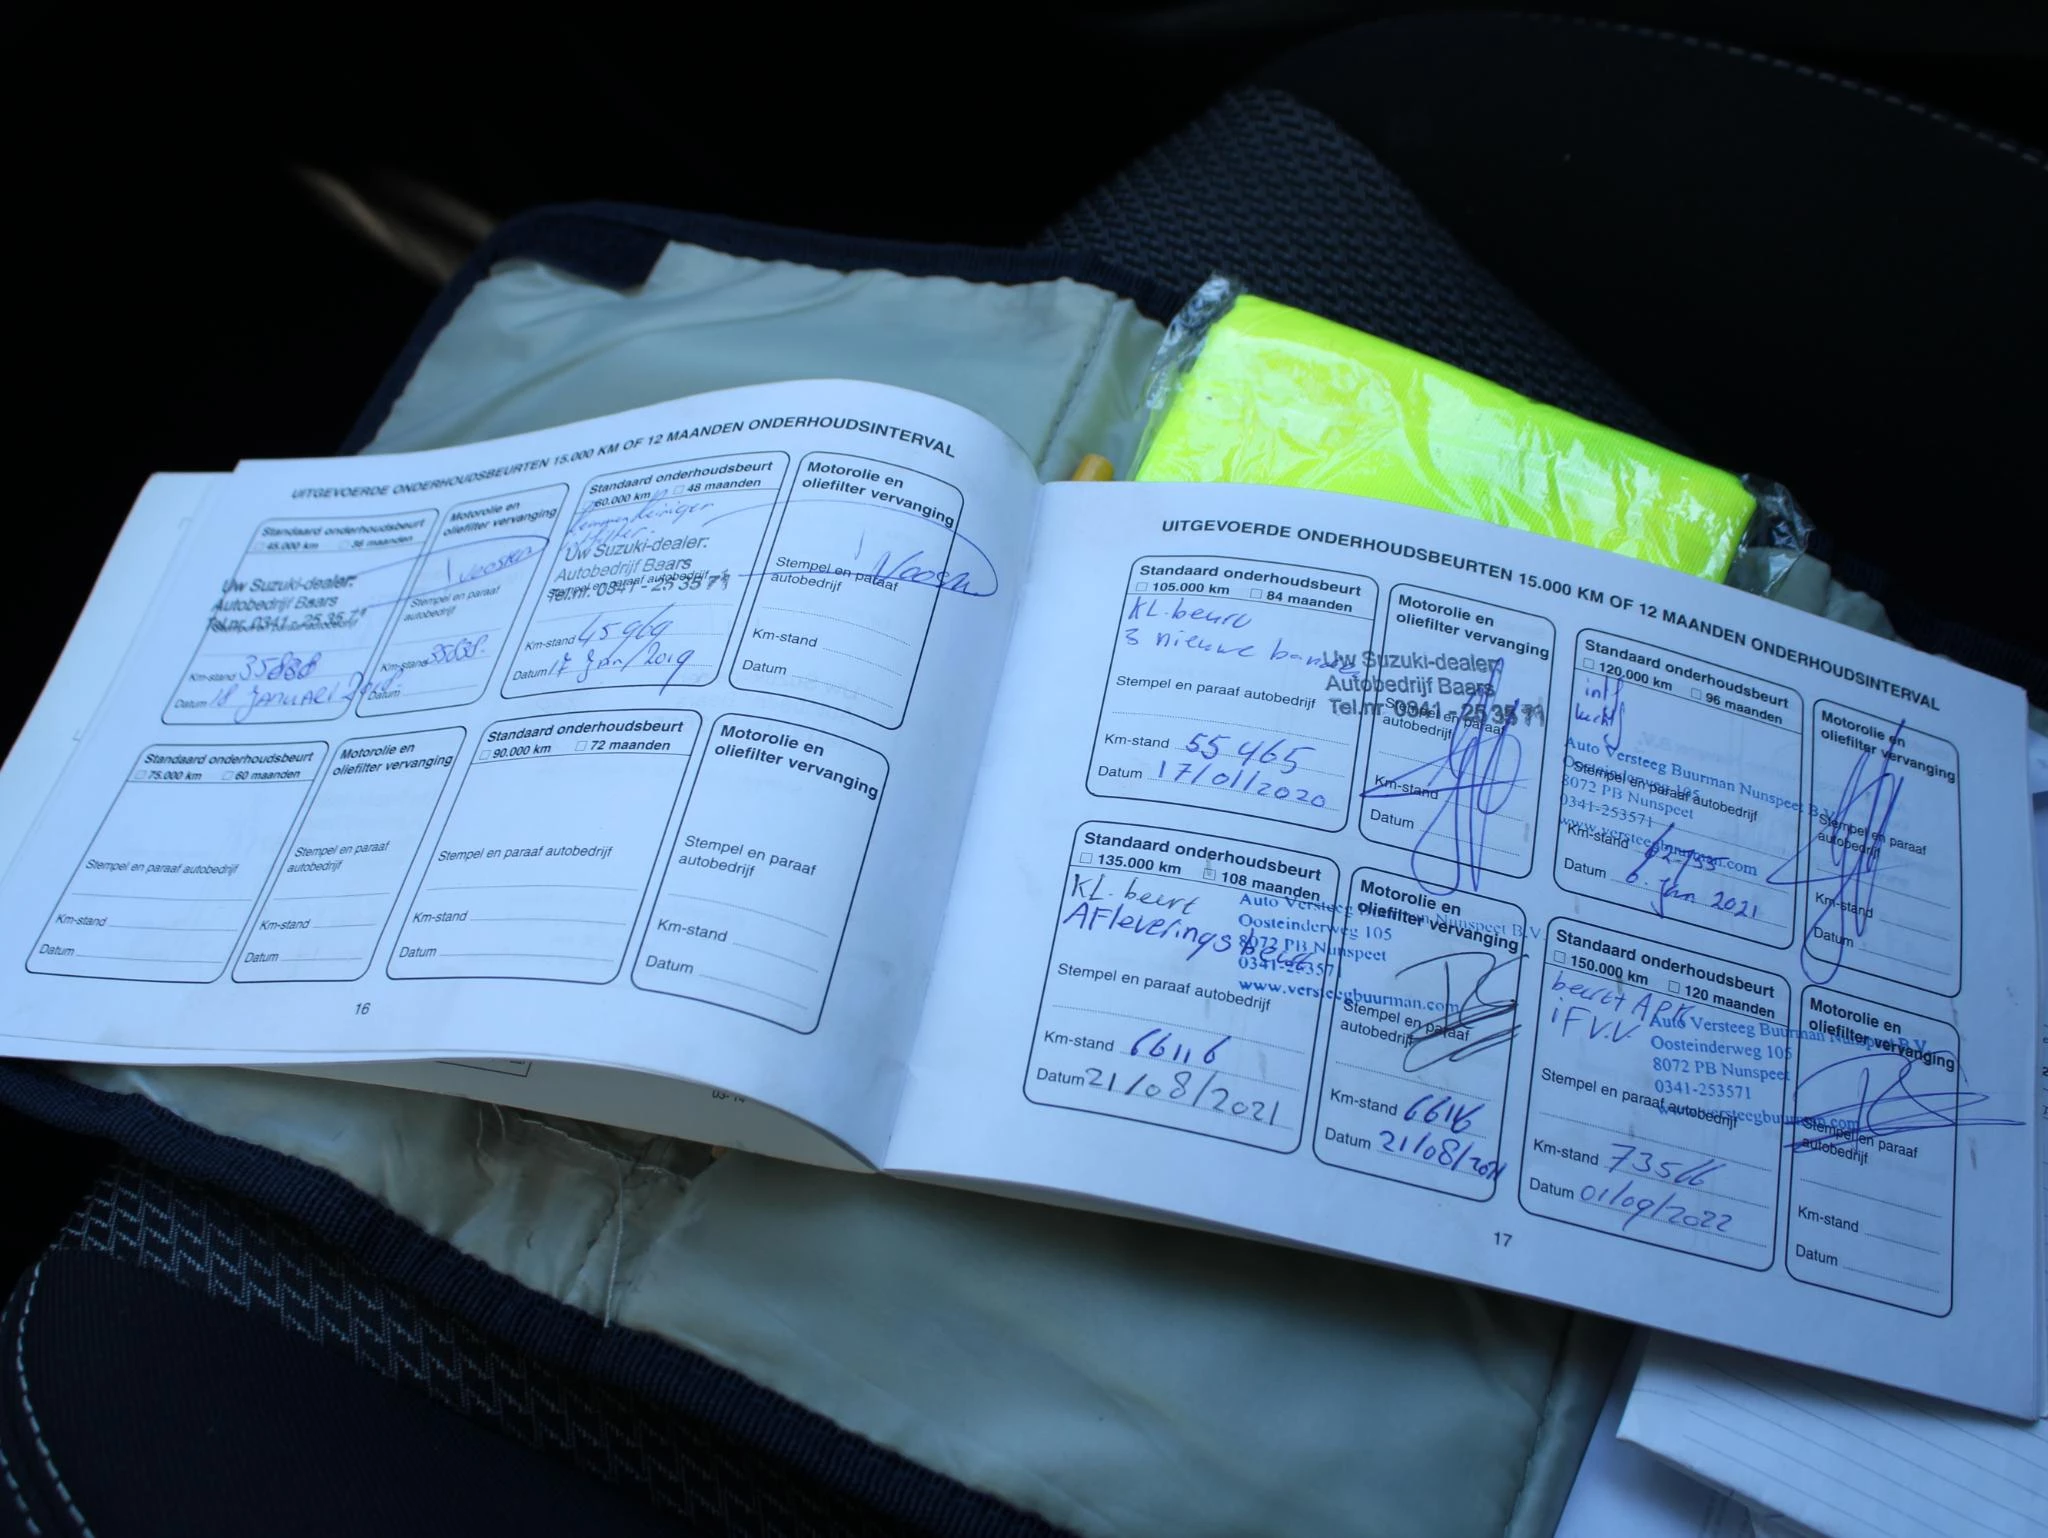 UITGEVOERDE ONDERHOUDSBEURTEN 15.000 KM OF 12 MAANDEN ONDERHOUDSINTERVAL
Standaard onderhoudsbeurt
45.000 km 36 maanden
Uw Suzuki-dealer:
Autobedrijf Baars
Tel.nr. 0341 - 25 35 71
Km-stand 35888
Datum 18 JANUARI
Motorolie en
oliefilter vervanging
Stempel en paraaf
autobedrijf
Km-stand
Datum
Standaard onderhoudsbeurt
60.000 km 48 maanden
Remmen reinigen
Uw Suzuki-dealer:
Autobedrijf Baars
Stempel en paraaf autobedrijf
Tel.nr. 0341 - 25 35 71
Km-stand 45969
Datum 17 Jan/2019
Motorolie en
oliefilter vervanging
Stempel en paraaf
autobedrijf
Km-stand
Datum
Standaard onderhoudsbeurt
75.000 km 60 maanden
Stempel en paraaf autobedrijf
Km-stand
Datum
Motorolie en
oliefilter vervanging
Stempel en paraaf
autobedrijf
Km-stand
Datum
Standaard onderhoudsbeurt
90.000 km 72 maanden
Stempel en paraaf autobedrijf
Km-stand
Datum
Motorolie en
oliefilter vervanging
Stempel en paraaf
autobedrijf
Km-stand
Datum
16
03-14
UITGEVOERDE ONDERHOUDSBEURTEN 15.000 KM OF 12 MAANDEN ONDERHOUDSINTERVAL
Standaard onderhoudsbeurt
105.000 km 84 maanden
KL. beurt
3 nieuwe banden
Uw Suzuki-dealer:
Autobedrijf Baars
Tel.nr. 0341 - 25 35 71
Stempel en paraaf autobedrijf
Km-stand 55465
Datum 17/01/2020
Motorolie en
oliefilter vervanging
Stempel en paraaf
autobedrijf
Km-stand
Datum
Standaard onderhoudsbeurt
120.000 km 96 maanden
Auto Versteeg Buurman Nunspeet B.V.
Oosteinderweg 105
Stempel en paraaf autobedrijf
8072 PB Nunspeet
0341-253571
www.versteegbuurman.com
Km-stand
Datum 6 jan 2021
Motorolie en
oliefilter vervanging
Stempel en paraaf
autobedrijf
Km-stand
Datum
Standaard onderhoudsbeurt
135.000 km 108 maanden
KL. beurt
Afleverings beurt
Auto Versteeg Buurman Nunspeet B.V.
Oosteinderweg 105
8072 PB Nunspeet
0341-253571
www.versteegbuurman.com
Stempel en paraaf autobedrijf
Km-stand 66116
Datum 21/08/2021
Motorolie en
oliefilter vervanging
Stempel en paraaf
autobedrijf
Km-stand 66116
Datum 21/08/2021
Standaard onderhoudsbeurt
150.000 km 120 maanden
beurt + APK
Auto Versteeg Buurman Nunspeet B.V.
Oosteinderweg 105
8072 PB Nunspeet
0341-253571
www.versteegbuurman.com
Stempel en paraaf autobedrijf
Km-stand 73566
Datum 01/09/2022
Motorolie en
oliefilter vervanging
Stempel en paraaf
autobedrijf
Km-stand
Datum
17